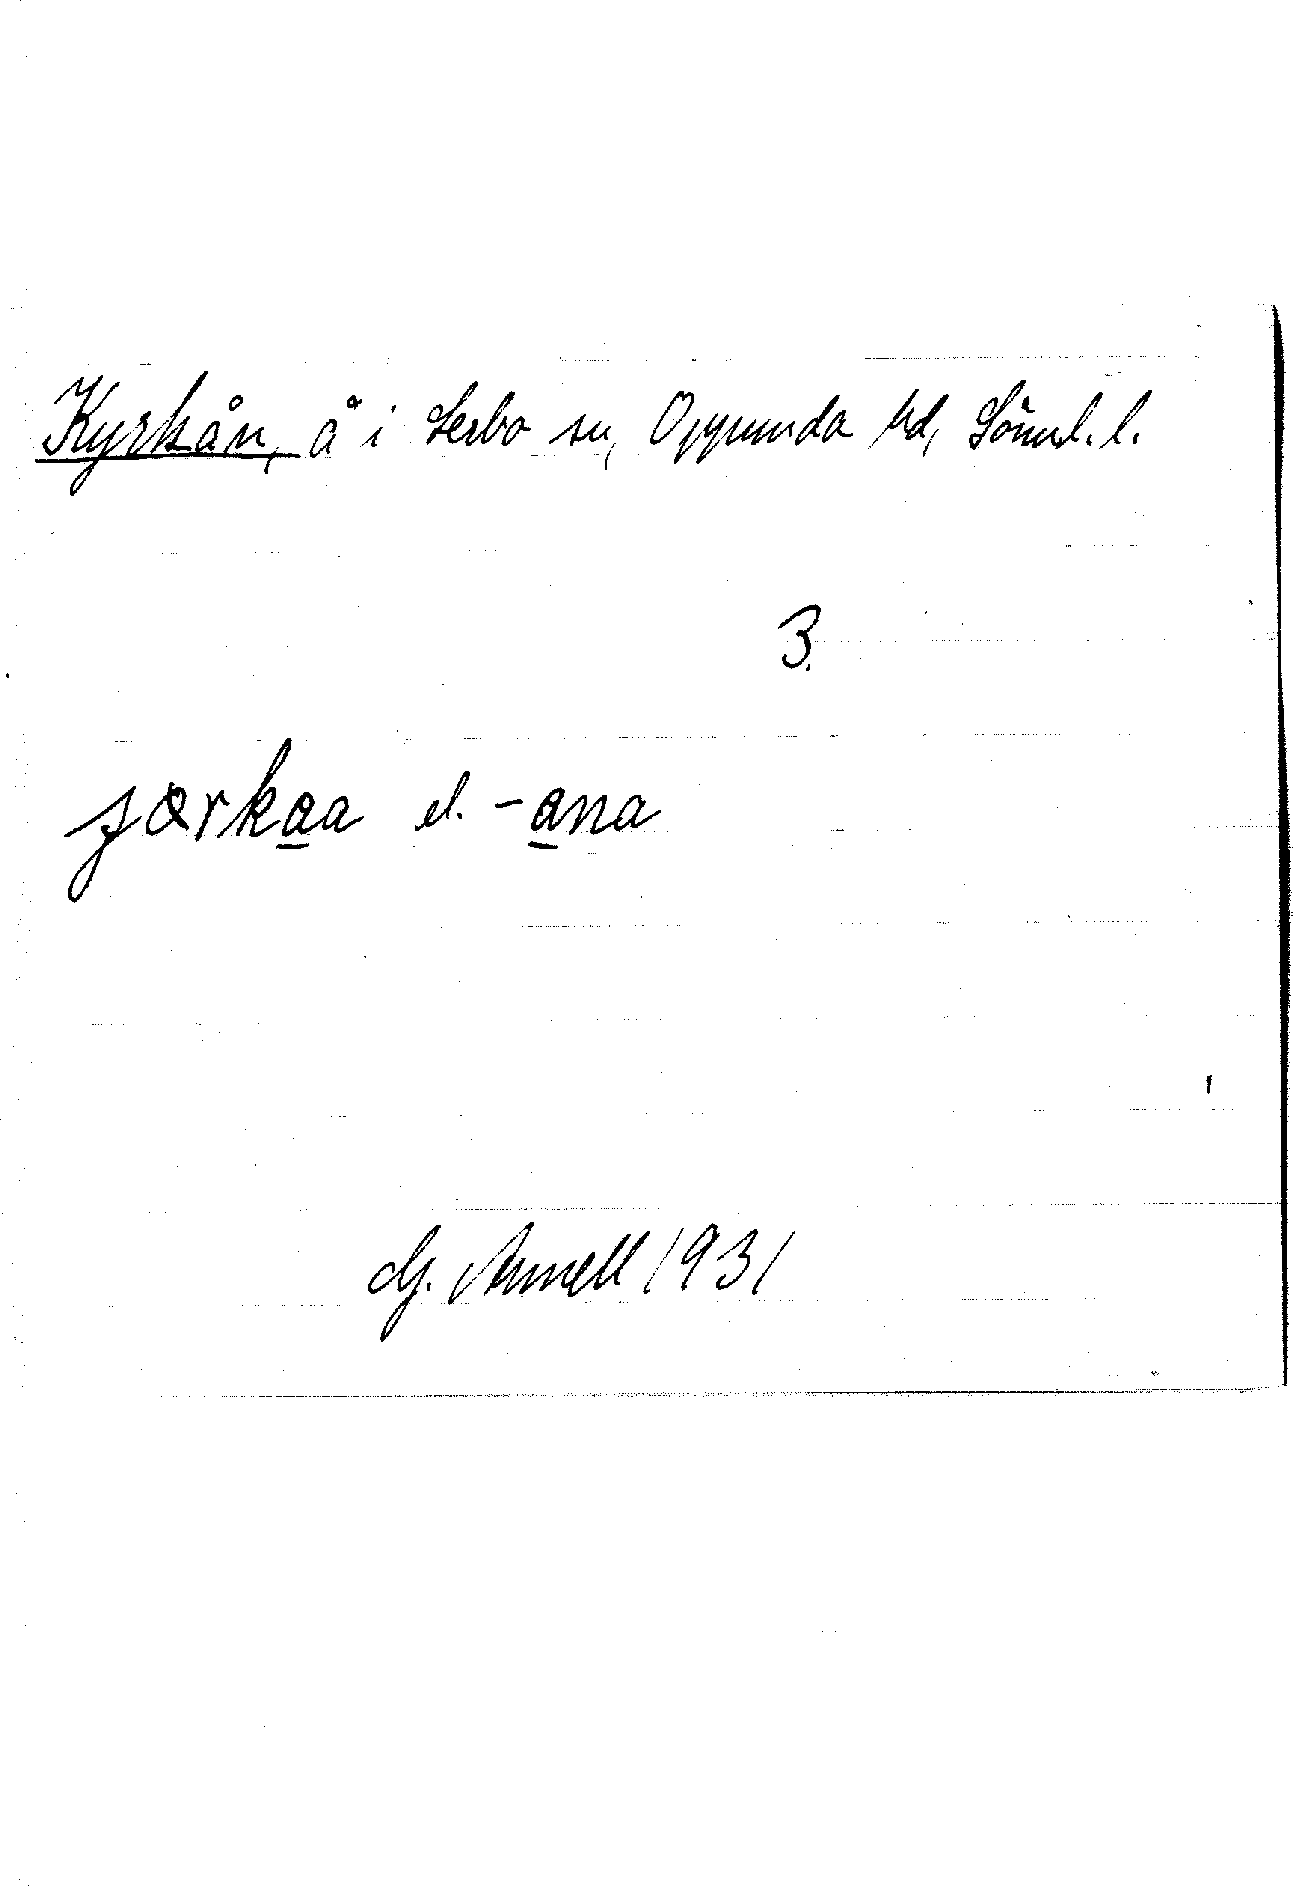 Kyrkån, å i Lerbo sn, Oppunda hd, Söml. l.
3.
jørkaa el. -ana
G. Annell 1931